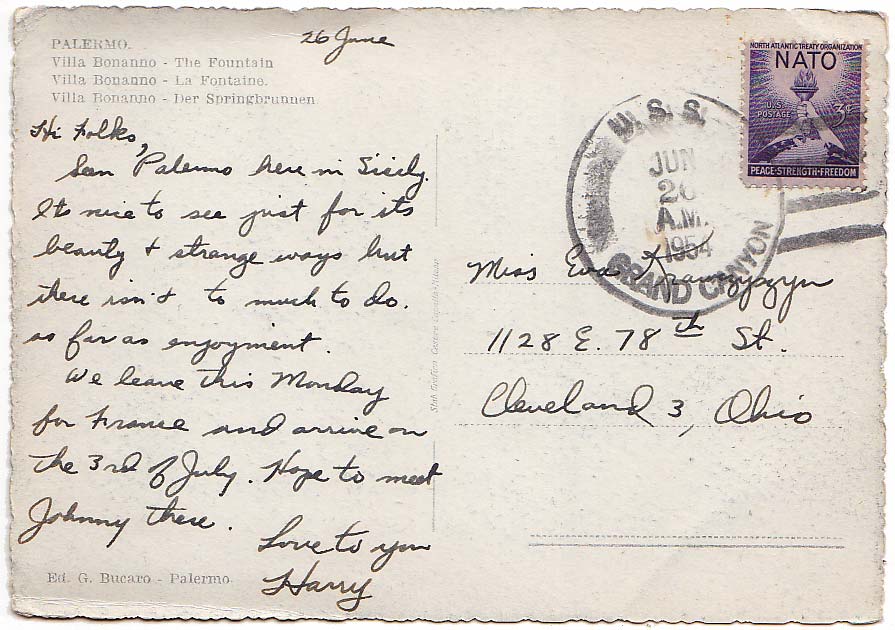 PALERMO.
Villa Bonanno - The Fountain
Villa Bonanno - La Fontaine.
Villa Bonanno - Der Springbrunnen
26 June
Hi Folks,
Seen Palermo here in Sicily.
Its nice to see just for its
beauty & strange ways but
there isn't to much to do.
as far as enjoyment.
We leave this Monday
for France and arrive on
the 3rd of July. Hope to meet
Johnny there.
Love to you
Harry
Ed. G. Bucaro - Palermo
NORTH ATLANTIC TREATY ORGANIZATION
NATO
U.S.
POSTAGE
3¢
PEACE·STRENGTH·FREEDOM
U.S.S.
JUN
26
A.M.
1954
GRAND CANYON
Miss Eva
1128 E. 78th St.
Cleveland 3, Ohio